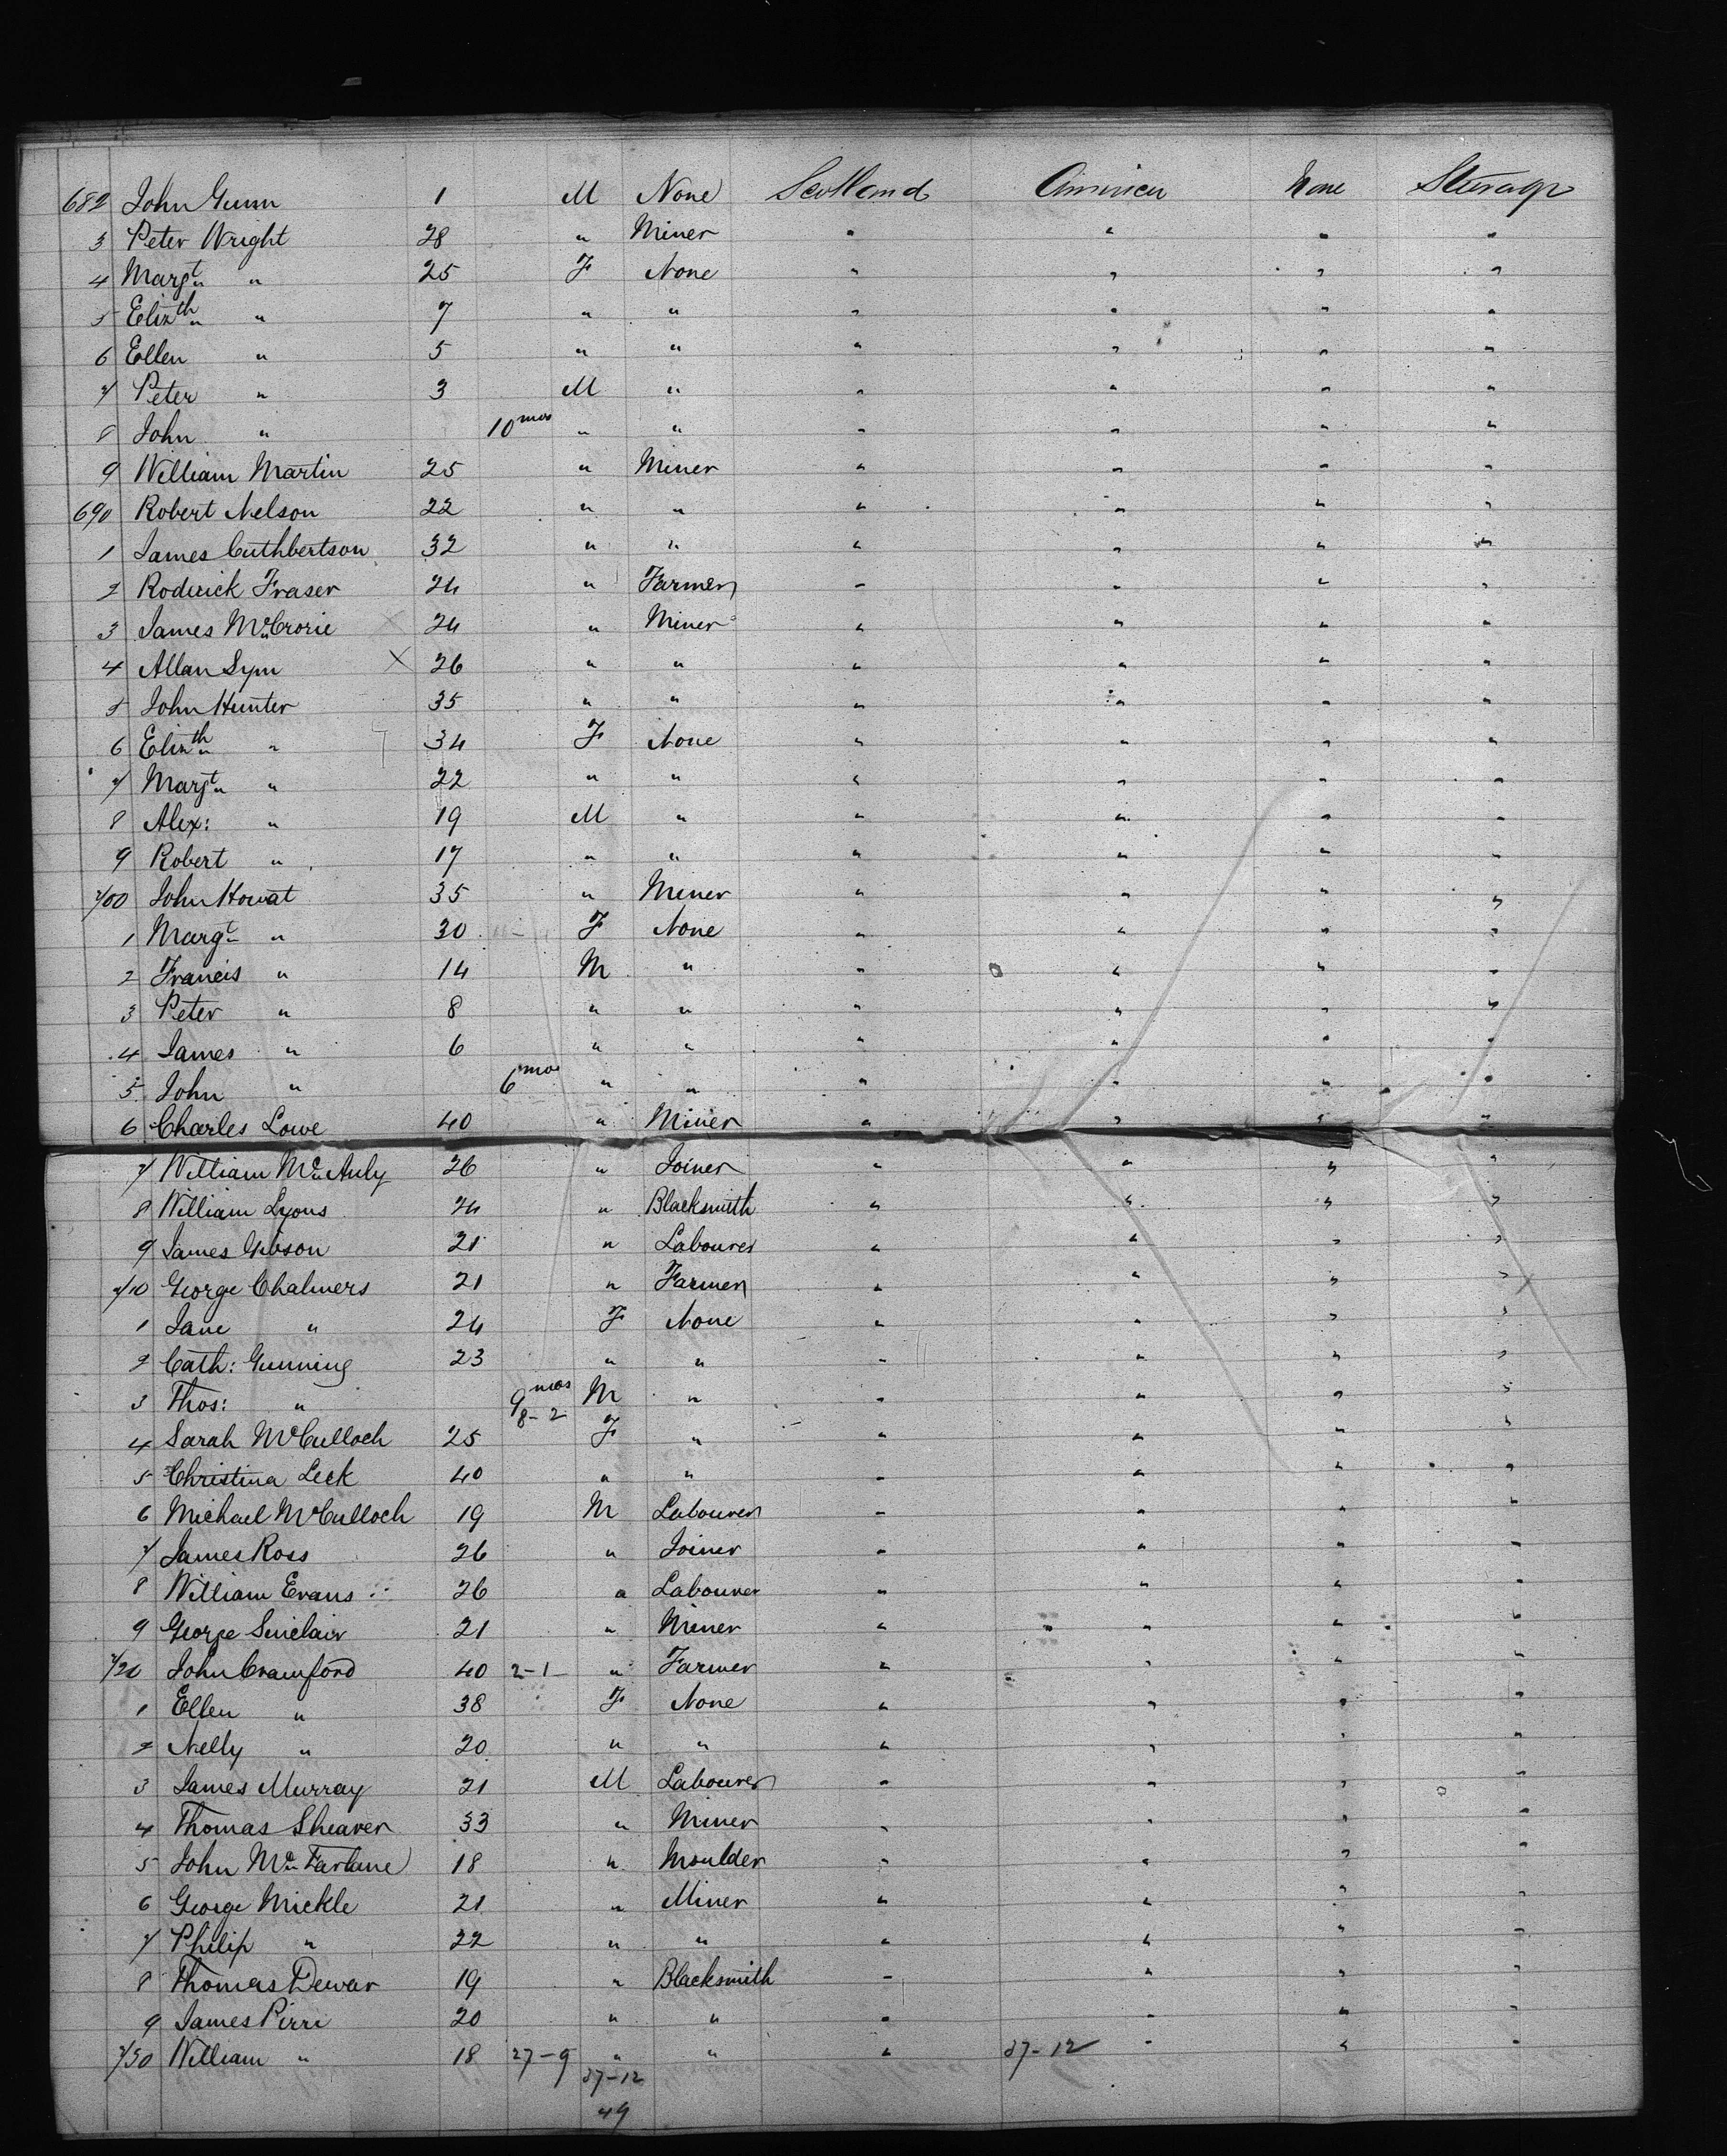 682 John Gunn 1 M None Scotland America None Steerage
3 Peter Wright 28 " Miner " " " "
4 Margt " 25 F None " " " "
5 Elizth " 7 " " " " " "
6 Ellen " 5 " " " " " "
7 Peter " 3 M " " " " "
8 John " 10 mos " " " " " "
9 William Martin 25 " Miner " " " "
690 Robert Nelson 22 " " " " " "
1 James Cuthbertson 32 " " " " " "
2 Roderick Fraser 24 " Farmer " " " "
3 James McCrorie X 24 " Miner " " " "
4 Allan Sym X 26 " " " " " "
5 John Hunter 35 " " " " " "
6 Elizth " 34 F None " " " "
7 Margt " 22 " " " " " "
8 Alex: " 19 M " " " " "
9 Robert " 17 " " " " " "
700 John Howat 35 " Miner " " " "
1 Margt " 30 F None " " " "
2 Francis " 14 M " " " " "
3 Peter " 8 " " " " " "
4 James " 6 " " " " " "
5 John " 6 mos " " " " " "
6 Charles Lowe 40 " Miner " " " "
7 William McAuly 26 " Joiner " " " "
8 William Lyons 24 " Blacksmith " " " "
9 James Gibson 21 " Labourer " " " "
710 George Chalmers 21 " Farmer " " " "
1 Jane " 24 F None " " " "
2 Cath: Gunning 23 " " " " " "
3 Thos: " 9 mos M " " " " "
8-2
4 Sarah McCulloch 25 F " " " " "
5 Christina Leck 40 " " " " " "
6 Michael McCulloch 19 M Labourer " " " "
7 James Ross 26 " Joiner " " " "
8 William Evans 26 " Labourer " " " "
9 George Sinclair 21 " Miner " " " "
720 John Crawford 40 2-1 " Farmer " " " "
1 Ellen " 38 F None " " " "
2 Nelly " 20 " " " " " "
3 James Murray 21 M Labourer " " " "
4 Thomas Shearer 33 " Miner " " " "
5 John McFarlane 18 " Moulder " " " "
6 George Mickle 21 " Miner " " " "
7 Philip " 22 " " " " " "
8 Thomas Dewar 19 " Blacksmith " " " "
9 James Pirri 20 " " " " " "
730 William " 18 27-9 " " " 37-12 " " "
37-12
49